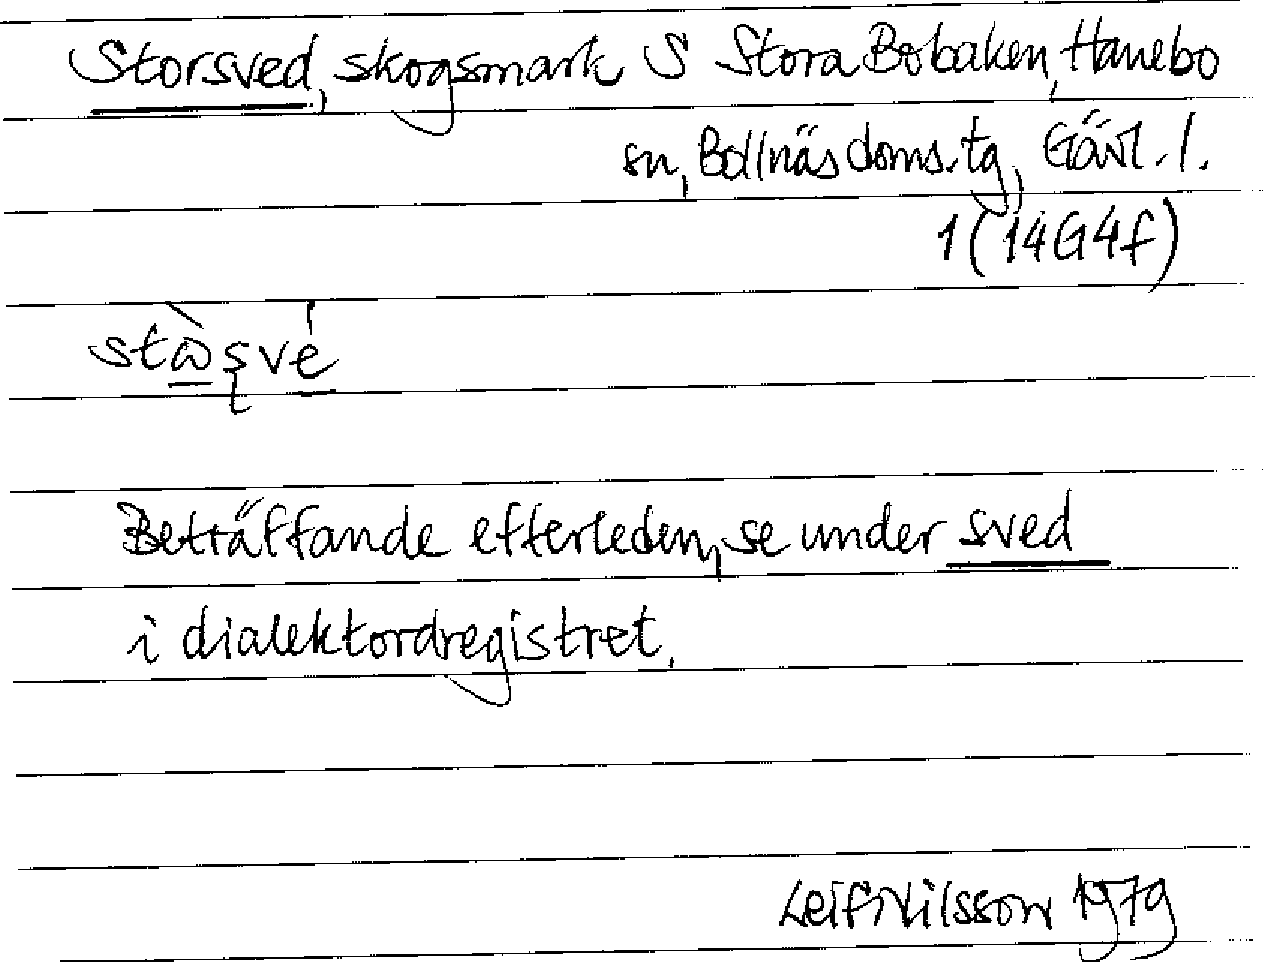 Storsved, skogsmark S Stora Bobaken, Hanebo
sn, Bollnäs doms. tg, Gävl. l.
1 (14G4f)
Beträffande efterleden, se under sved
i dialektordregistret.
Leif Nilsson 1979